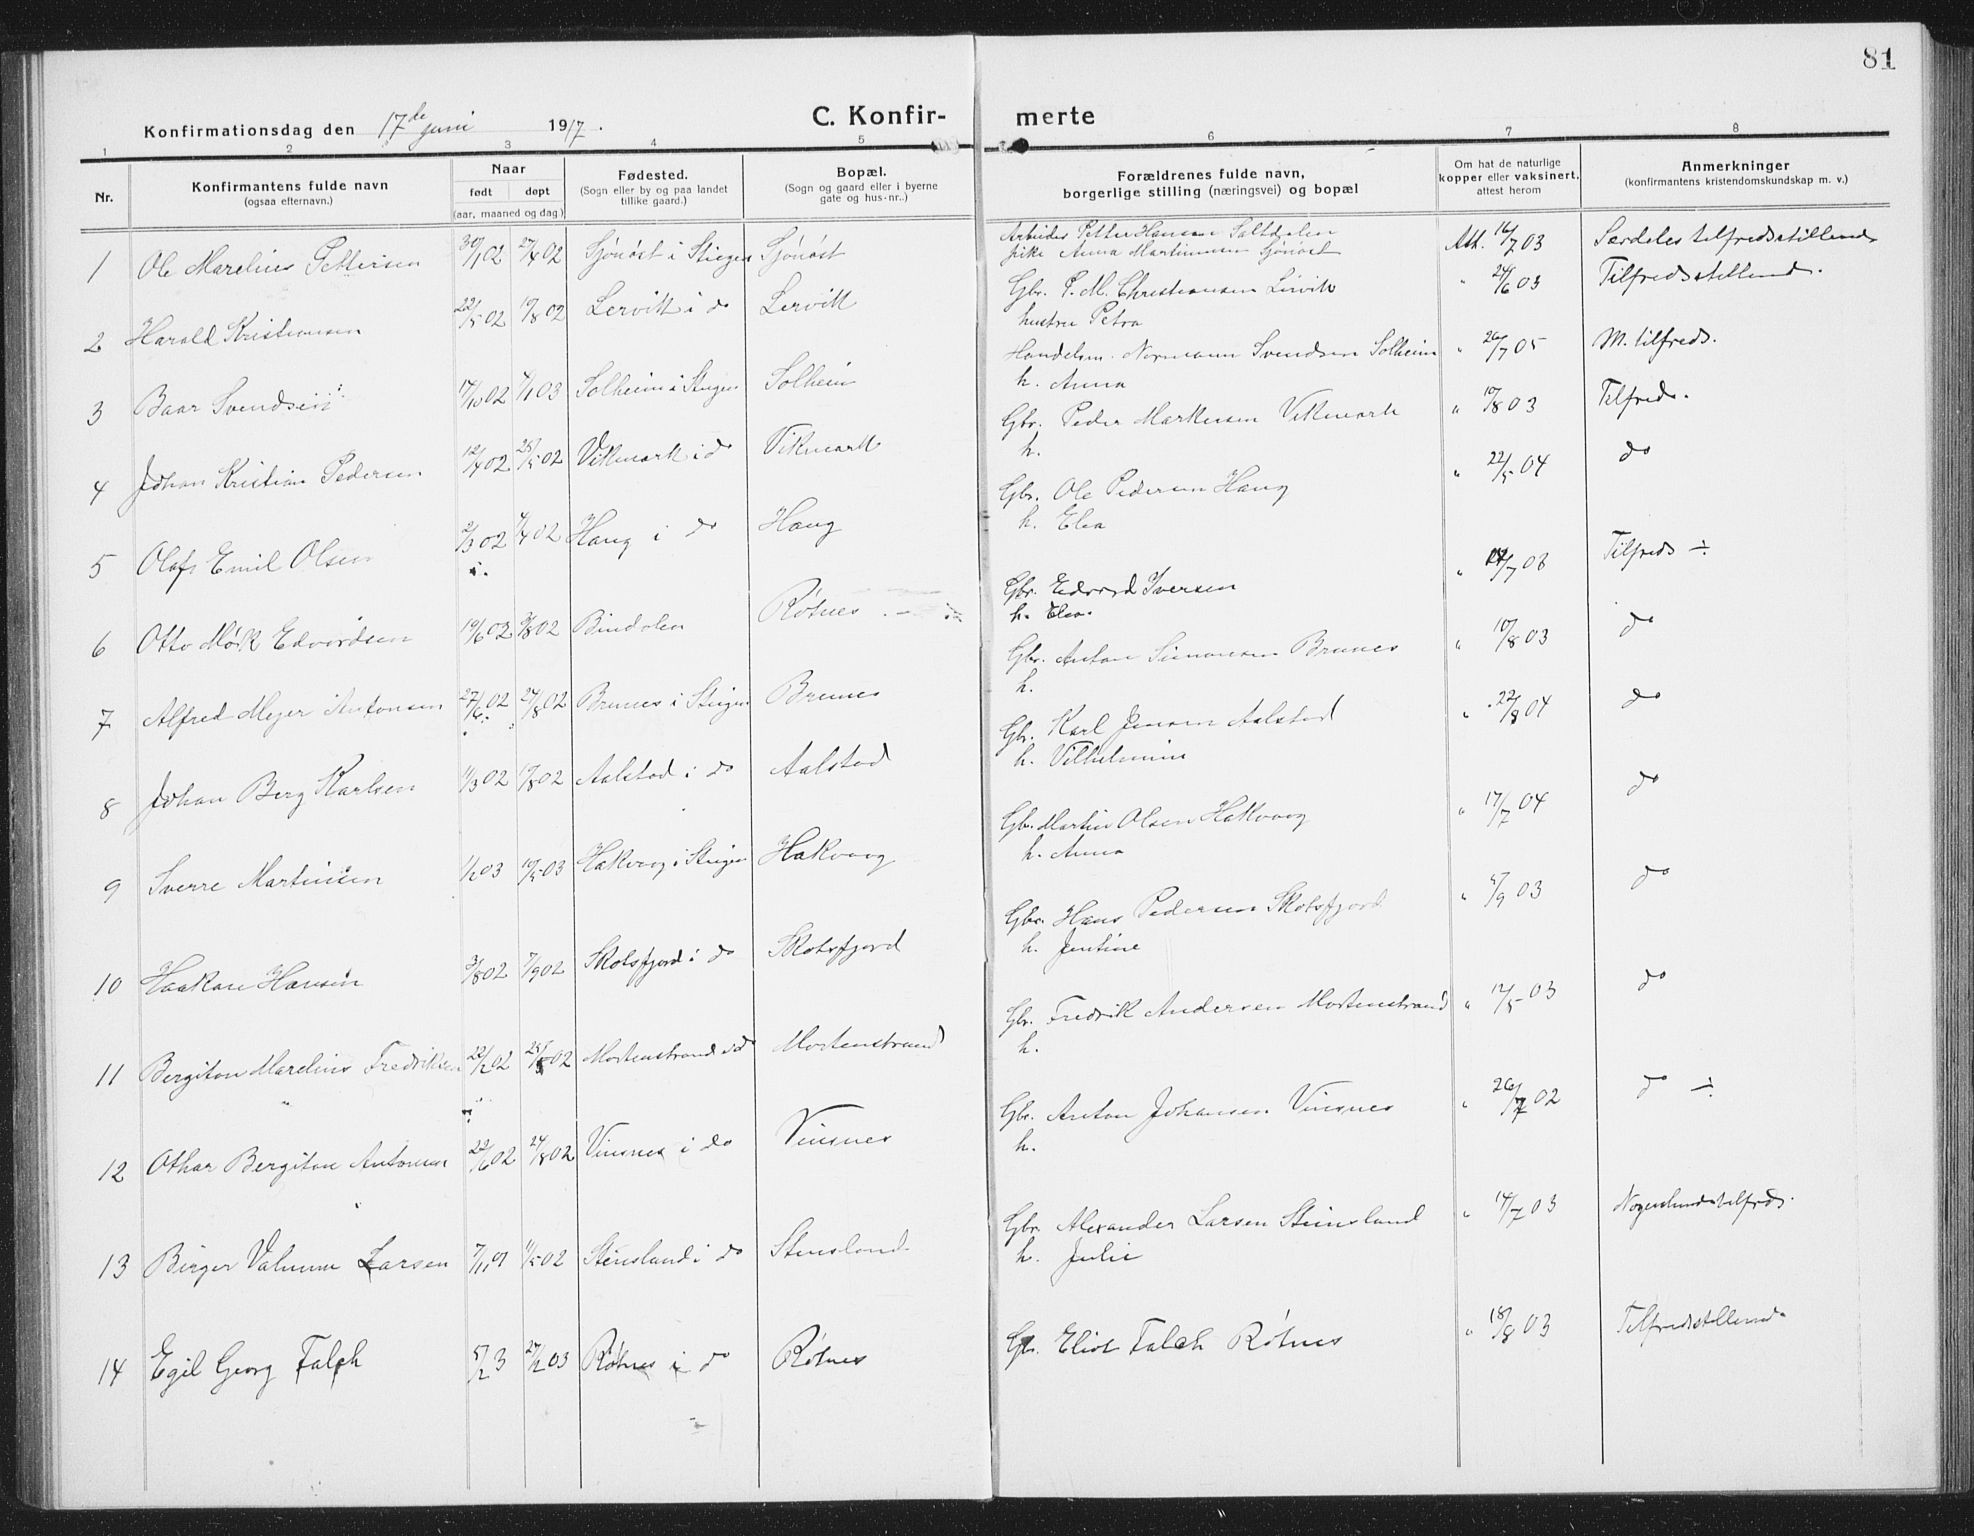 81
Konfirmationsdag den 17de juni 1917.
C. Konfir-
merte
1 2 3 4 5 6 7 8
Nr.
Konfirmantens fulde navn
(ogsaa efternavn.)
Naar
født døpt
(aar, maaned og dag)
Fødested.
(Sogn eller by og paa landet
tillike gaard.)
Bopæl.
(Sogn og gaard eller i byerne
gate og hus-nr..)
Forældrenes fulde navn,
borgerlige stilling (næringsvei) og bopæl
Om hat de naturlige
kopper eller vaksinert,
attest herom
Anmerkninger
(konfirmantens kristendomskundskap m. v.)
1 Ole Marelius Pettersen 30/1 02 27/4 02 Sjønøst i Steigen Sjønøst Arbeider Petter Hansen Saltdalen Att. 16/7 03 Særdeles tilfredsstillende
pike Anna Martinusen Sjønøst
2 Harald Kristiansen 22/5 02 02 Lervik i do Lervik Gbr. P. M. Christiansen Lervik " 24/6 03 Tilfredsstillend.
hustru Petra
3 Baar Svendsen 17/10 02 03 Solheim i Steigen Solheim Handelsm. Normann Svendsen Solheim " 26/7 05 M. tilfreds.
h. Anna
4 Johan Kristian Pedersen 12/4 02 25/5 02 Vikmark i do Vikmark Gbr. Peder Markusen Vikmark " 10/8 03 Tilfreds.
h.
5 Olaf Emil Olsen 2/3 02 02 Haug i do Haug Gbr. Ole Pedersen Haug " 22/5 04 do
h. Elea
6 Otto Mørk Edvardsen 19/6 02 02 Bindalen Røtnes Gbr. Edvard Iversen " Tilfreds ÷
h. Elea.
7 Alfred Meyer Antonsen 27/6 02 24/8 02 Brunes i Steigen Brunes Gbr. Anton Simonsen Brunes " 10/8 03 do
h.
8 Johan Berg Karlsen 11/3 02 17/8 02 Aalstad i do Aalstad Gbr. Karl Jensen Aalstad " 22/8 04 do
h. Vilhelmine
9 Sverre Martinsen 03 10/5 03 Hakvaag i Steigen Hakvaag Gbr. Martin Olsen Hakvaag " 17/7 04 do
h. Anna
10 Haakon Hansen 3/8 02 7/9 02 Skotsfjord i do Skotsfjord Gbr. Hans Pedersen Skotsfjord " 03 do
h. Jentine
11 Bergiton Marelius Fredriksen 22/2 02 02 Mortenstrand i do Mortenstrand Gbr. Fredrik Andersen Mortenstrand " 12/5 03 do
h.
12 Othar Bergiton Antonsen 22/6 02 24/8 02 Vinsnes i do Vinsnes Gbr. Anton Johansen Vinsnes " 26/7 02 do ÷
h.
13 Birger Larsen 7/11 01 11/5 02 Steinsland i do Steinsland Gbr. Alexander Larsen Steinsland " 14/7 03 Nogenlunde tilfreds.
h. Julie
14 Egil Georg Falch 5/2 3 03 Røtnes i do Røtnes Gbr. Eliot Falch Røtnes " 18/8 03 Tilfredsstillende